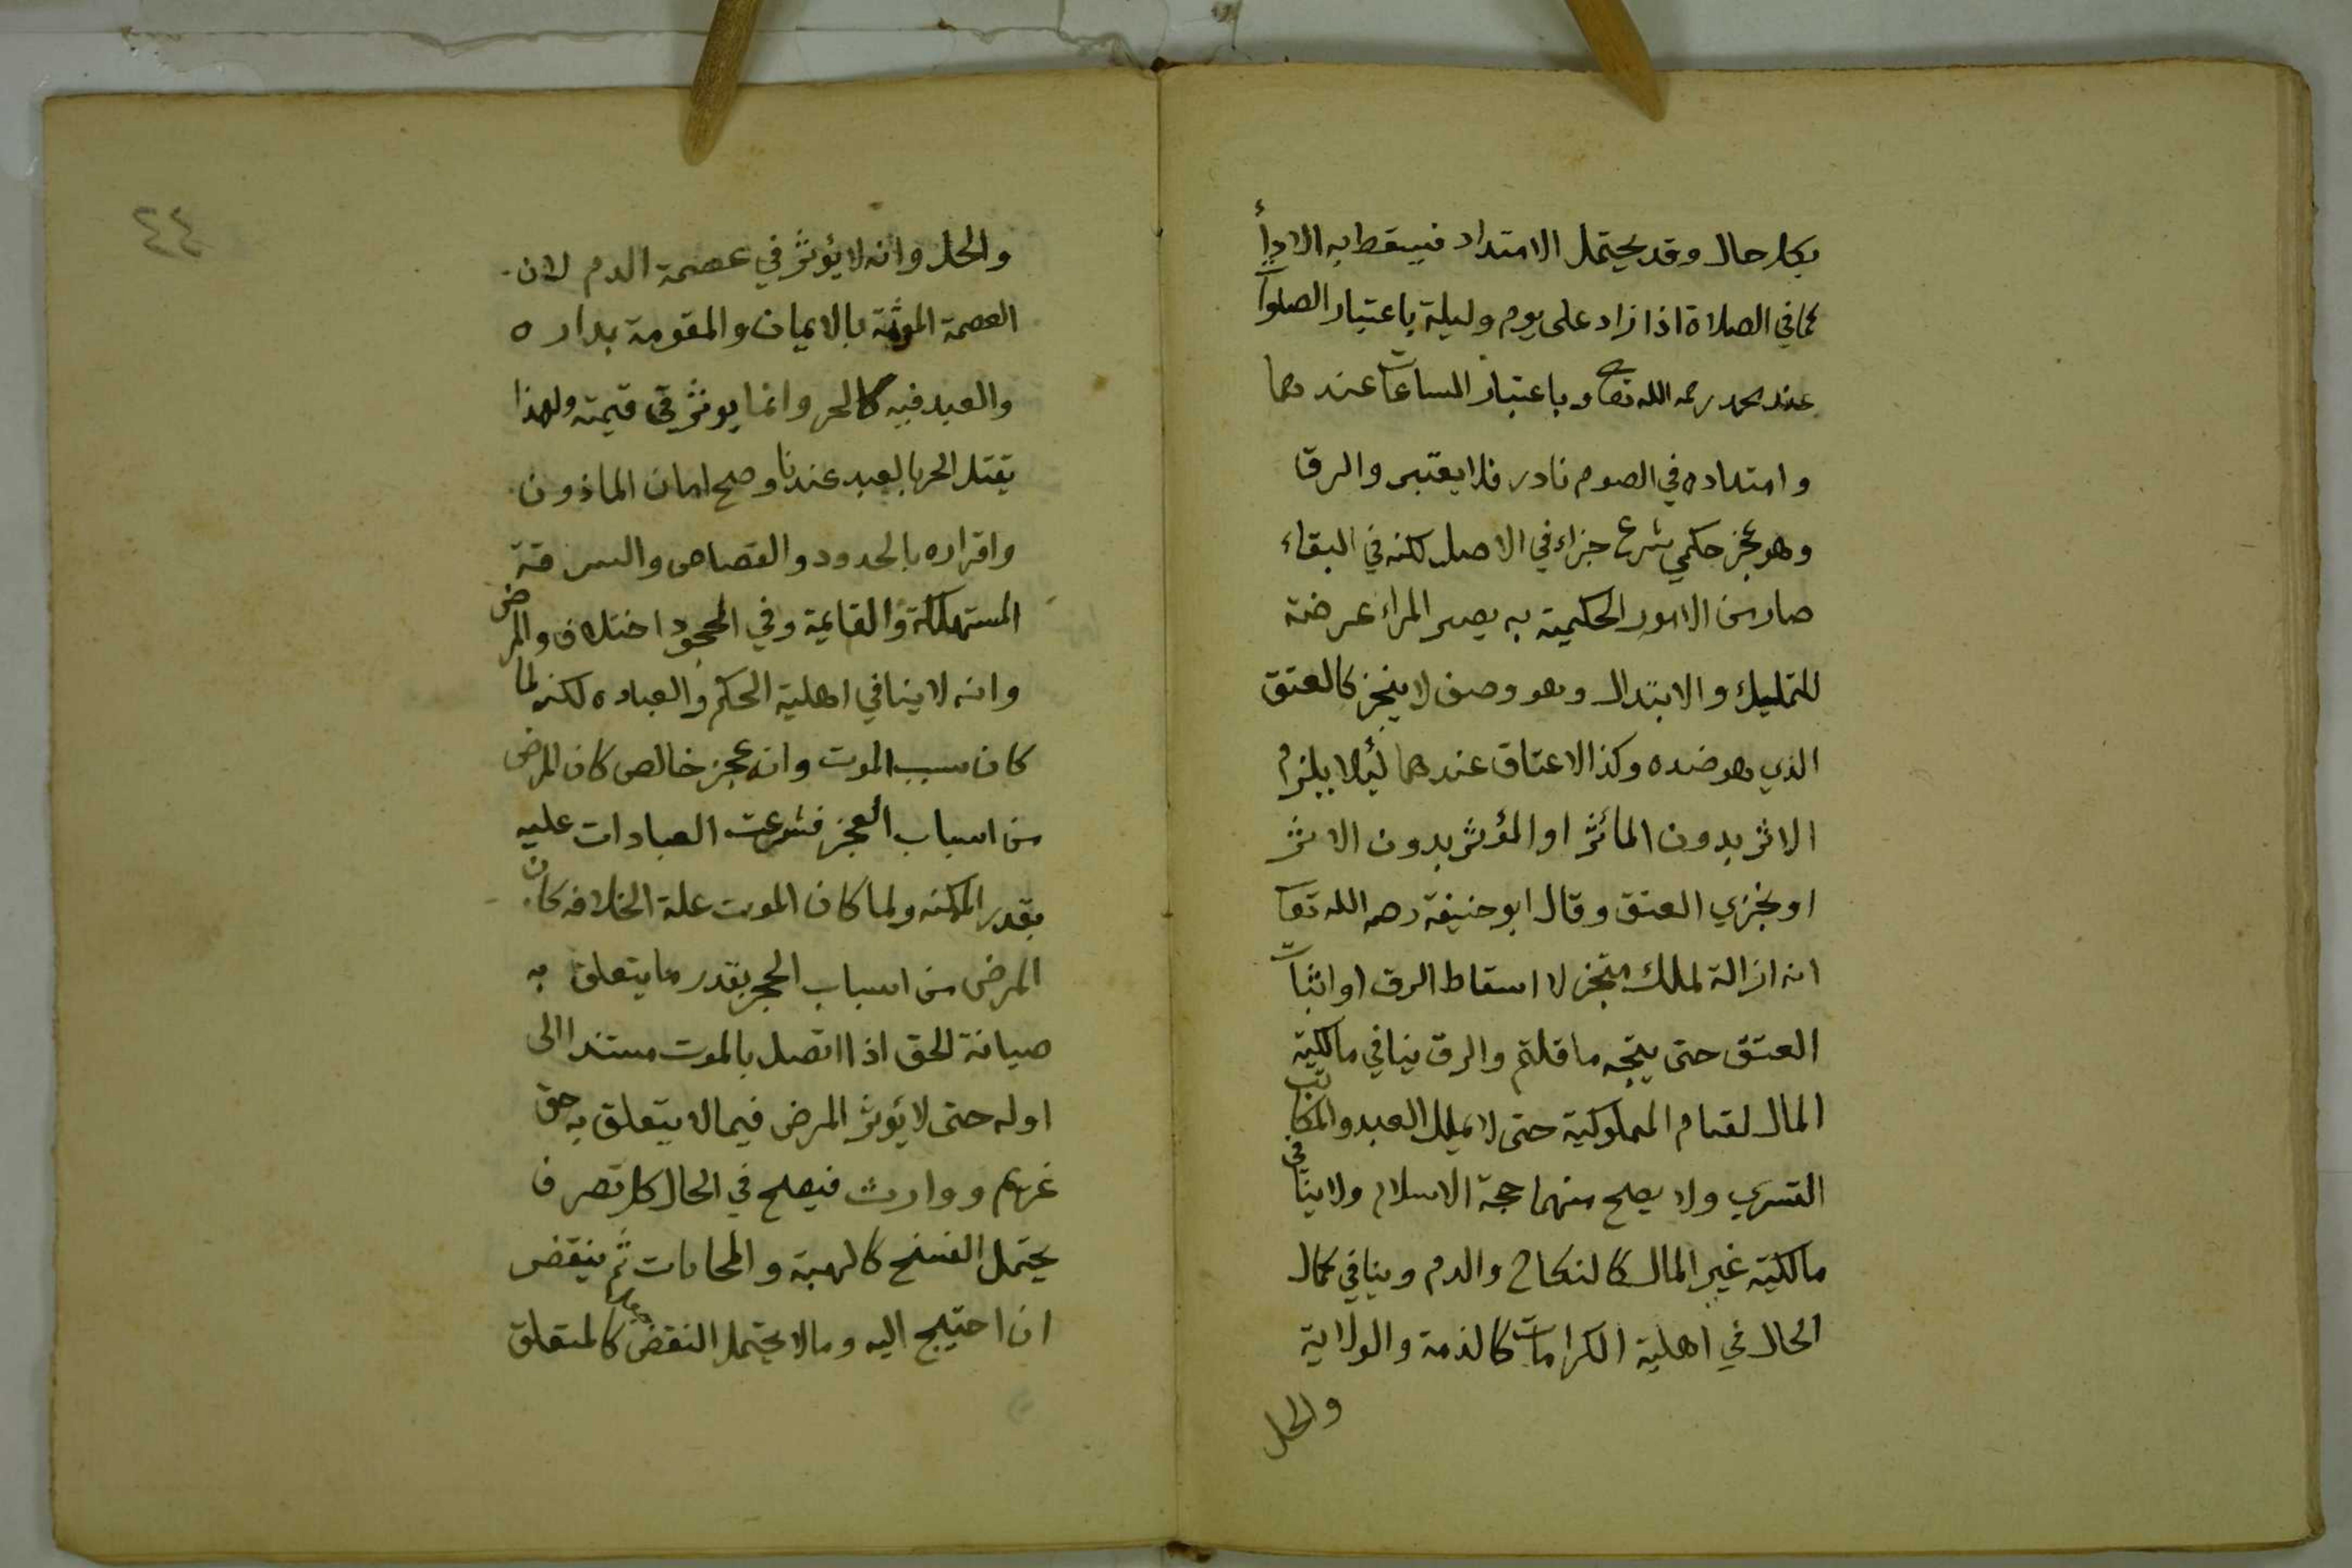 بكل حال وقد يحتمل الامتداد فيسقط به الادأء
كما في الصلاة اذا زاد على يوم وليلة باعتبار الصلوات
عند محمد رحمه الله تعا وباعتبار الساعات عندهما
وامتداده في الصوم نادر فلا يعتبر والرق
وهو عجز حكمي شرع جزاء في الاصل لكنه في البقاء
صار من الامور الحكمية به يصير المراء عرضة
للتمليك والابتدال وهو وصف لا يتجز كالعتق
الذي هو ضده وكذا الاعتاق عندهما لئلا يلزم
الاثر بدون المأثر او المؤثر بدون الاثر
او تجزي العتق وقال ابو حنيفة رحمه الله تعا
انه ازالة لملك متجز لا اسقاط الرق او اثبات
العتق حتى يتجه ما قلتم والرق ينافي مالكية
المال لقيام المملوكية حتى لا يملك العبد والمكاتب
التسري ولا يصح منهما حجة الاسلام ولا ينافي
مالكية غير المال كالنكاح والدم وينافي كمال
الحال في اهلية الكرامات كالذمة والولاية
والحل
٤٤
والحل وانه لا يؤثر في عصمة الدم لان
العصمة الموثمة بالايمان والمقومة بداره
والعبد فيه كالحر وانما يوثر في قيمته ولهذا
يقتل الحر بالعبد عندنا وصح امان الماذون
واقراره بالحدود والقصاص والسرقة
المستهلكة والقايمة وفي المحجور اختلاف والمرض
وانه لا ينافي اهلية الحكم والعباده لكنه لما
كان سبب الموت وانه عجز خالص كان المرض
من اسباب العجز فشرعت العبادات عليه
بقدر المكنه ولما كان الموت علة الخلافه كان
المرض من اسباب الحجر بقدر ما يتعلق به
صيانة الحق اذا اتصل بالموت مستندا الى
اوله حتى لا يؤثر المرض فيما لا يتعلق به حق
غريم ووارث فيصح في الحال كل تصرف
يحتمل الفسخ كالهبة والمحابات ثم ينقض
ان احتيج اليه وما لا يحتمل النقض كالمتعلق